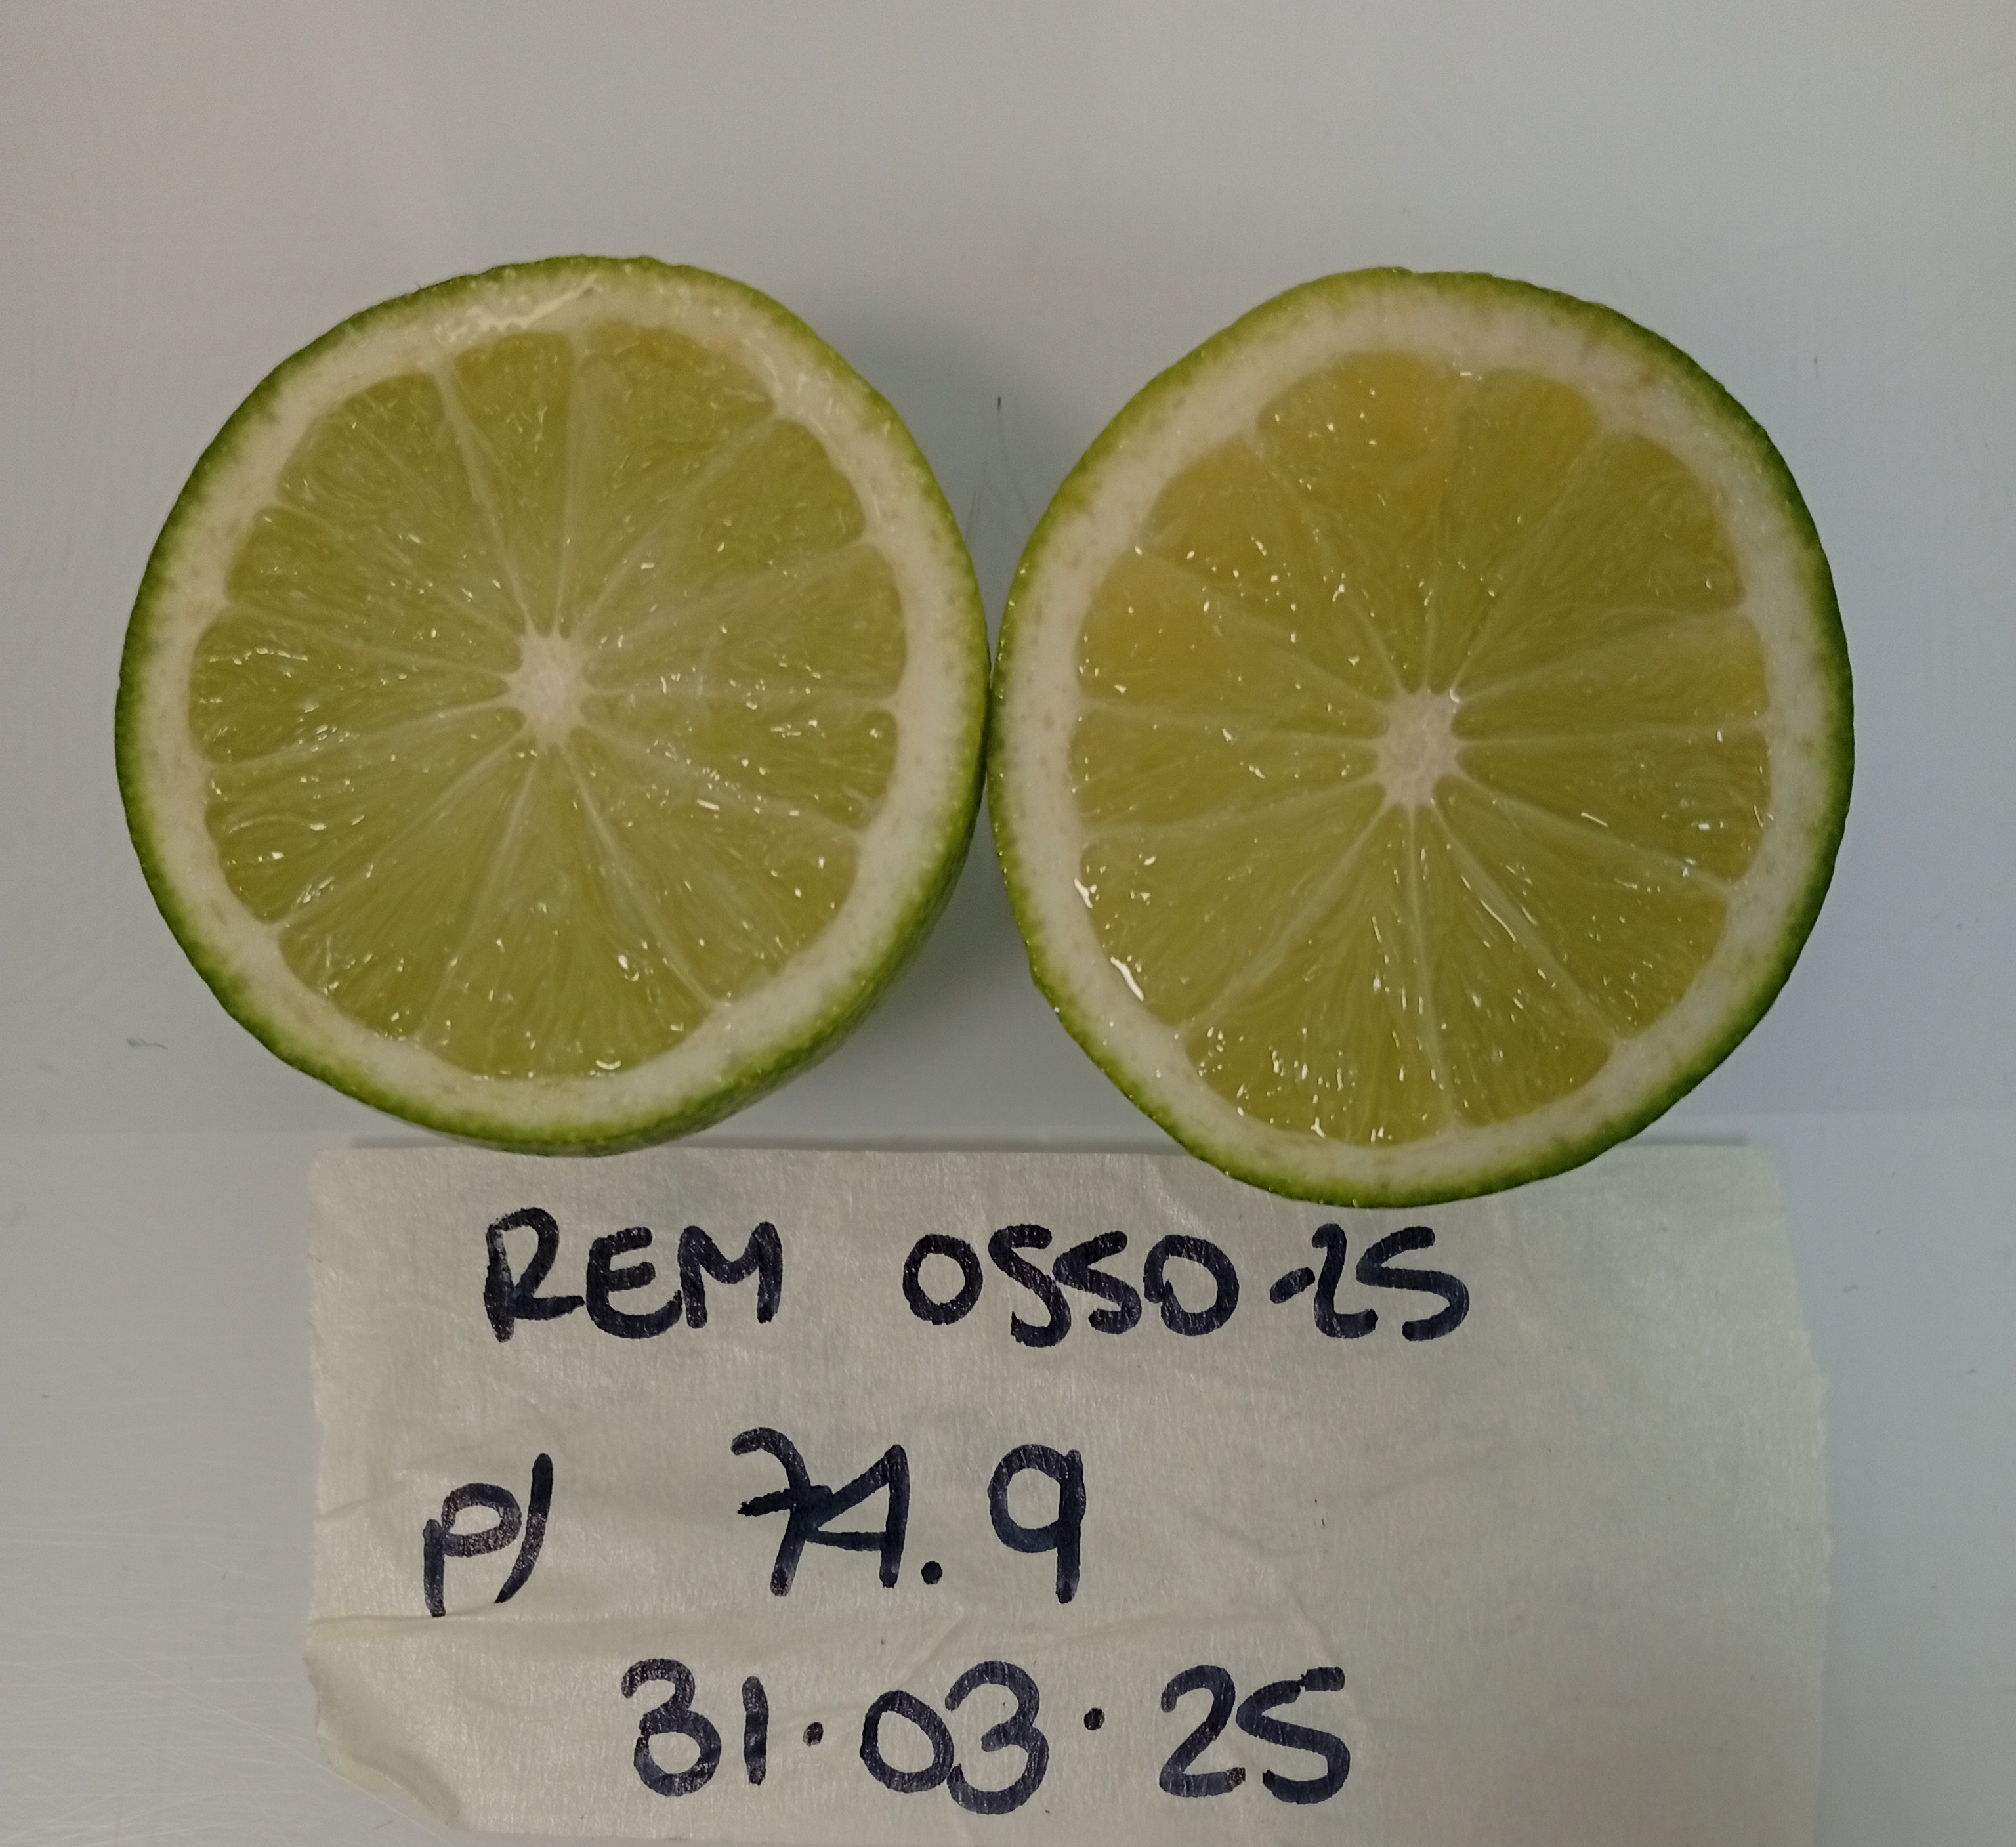 REM 0550-25
P/ 74.9
31.03.25